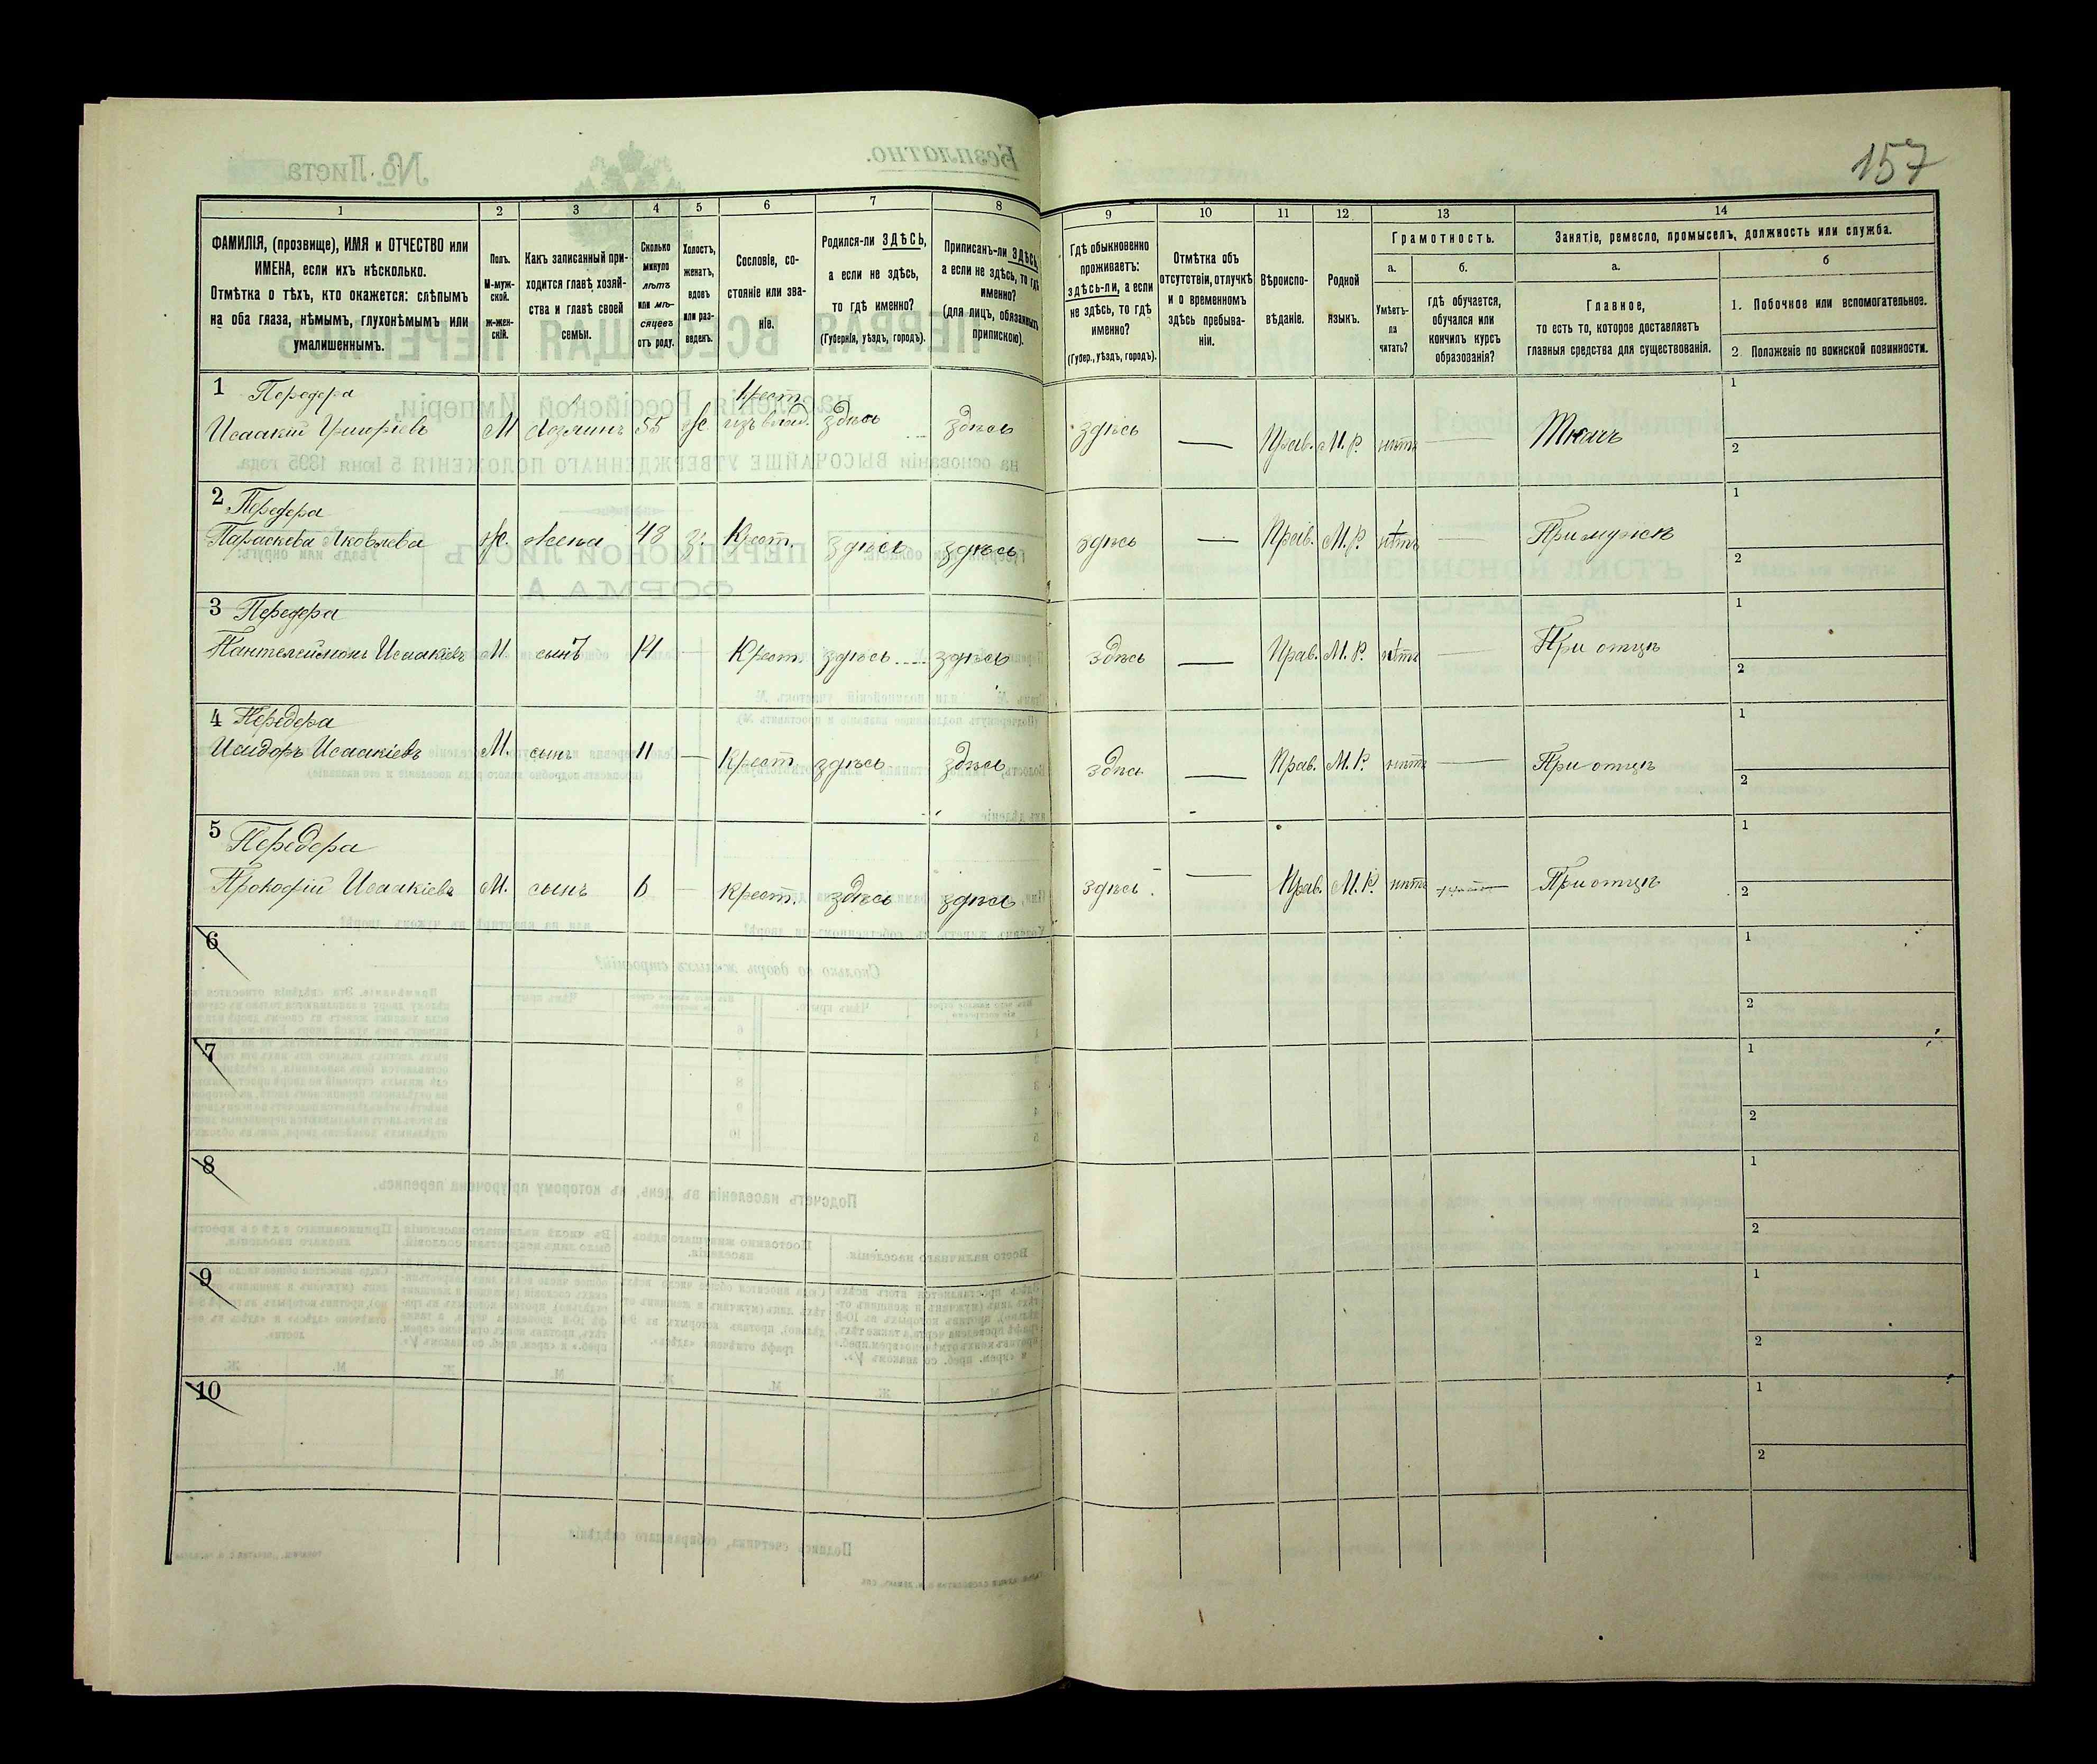 157
1 2 3 4 5 6 7 8 9 10 11 12 13 14
ФАМИЛІЯ, (прозвище), ИМЯ и ОТЧЕСТВО или
ИМЕНА, если ихъ нѣсколько.
Отмѣтка о тѣхъ, кто окажется: слѣпымъ
на оба глаза, нѣмымъ, глухонѣмымъ или
умалишеннымъ.
Полъ.
М-муж-
ской.
ж-жен-
скій.
Какъ записанный при-
ходится главѣ хозяй-
ства и главѣ своей
семьи.
Сколько
минуло
лѣтъ
или мѣ-
сяцевъ
отъ роду.
Холостъ,
женатъ,
вдовъ
или раз-
веденъ.
Сословіе, со-
стояніе или зва-
ніе.
Родился-ли ЗДѢСЬ,
а если не здѣсь,
то гдѣ именно?
(Губернія, уѣздъ, городъ).
Приписанъ-ли ЗДѢСЬ,
а если не здѣсь, то гдѣ
именно?
(для лицъ, обязанныхъ
припискою).
Гдѣ обыкновенно
проживаетъ:
здѣсь-ли, а если
не здѣсь, то гдѣ
именно?
(Губер., уѣздъ, городъ).
Отмѣтка объ
отсутствіи, отлучкѣ
и о временномъ
здѣсь пребыва-
ніи.
Вѣроиспо-
вѣданіе.
Родной
языкъ.
Грамотность.
а.
Умѣетъ-
ли
читать?
б.
гдѣ обучается,
обучался или
кончилъ курсъ
образованія?
Занятіе, ремесло, промыселъ, должность или служба.
а.
Главное,
то есть то, которое доставляетъ
главныя средства для существованія.
б
1. Побочное или вспомогательное.
2. Положеніе по воинской повинности.
1 Передера Крест. 1
Исаакій М хозяинъ 55 ж. изъ влад. здѣсь здѣсь здѣсь — Прав. М.Р. нѣтъ — Ткачъ 2
2 Передера 1
Параскева Яковлева ж. жена 48 з. Крест. здѣсь здѣсь здѣсь — Прав. М.Р. нѣтъ — При мужѣ 2
3 Передера 1
Пантелеймонъ Исаакіевъ М. сынъ 14 — Крест. здѣсь здѣсь здѣсь — Прав. М.Р. нѣтъ — При отцѣ 2
4 Передера 1
Исидоръ Исаакіевъ М. сынъ 11 — Крест. здѣсь здѣсь здѣсь — Прав. М.Р. нѣтъ — При отцѣ 2
5 Передера 1
Прокофій Исаакіевъ М. сынъ 6 — Крест. здѣсь здѣсь здѣсь — Прав. М.Р. нѣтъ — При отцѣ 2
6 1
2
7 1
2
8 1
2
9 1
2
10 1
2